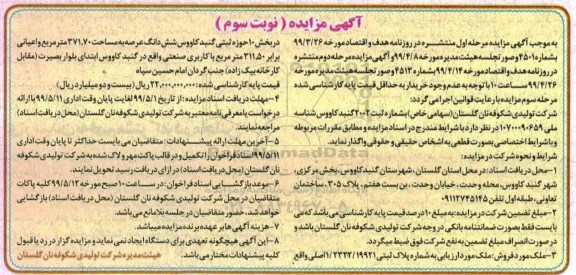 آگهی مزایده ( نوبت سوم )
به موجب آگهی مزایده مرحله اول منتشره در روزنامه هدف و اقتصاد مورخه ۹۹/۳/۲۶
شماره ۴۵۰۱ و صورتجلسه هیئت مدیره مورخه ۹۹/۴/۸ و آگهی مزایده مرحله دوم منتشره
در روزنامه هدف و اقتصاد مورخه ۹۹/۴/۱۴ شماره ۴۵۱۳ و صورتجلسه هیئت مدیره مورخه
۹۹/۴/۲۶ ساعت ۱۰ با توجه به عدم وجود خریدار به حداقل قیمت پایه کارشناسی شده
مرحله سوم مزایده با رعایت قوانین اجرامی گردد:
شرکت تولیدی شکوفه نان گلستان (سهامی خاص) بشماره ثبت ۲۰۰۲ گنبد کاووس شناسه
ملی ۱۰۷۰۰۰۹۰۶۵۹ در نظر دارد با شرایط مندرج در اسناد مزایده و مطابق مقررات مربوطه
و با شرایط اختصاصی بصورت قطعی به اشخاص حقیقی و حقوقی واگذار نماید.
شرایط و نحوه شرکت در مزایده:
۱-محل دریافت اسناد: در محل استان گلستان، شهرستان گنبد کاووس، بخش مرکزی،
شهر گنبد کاووس، محله وحدت، خیابان وحدت، بن بست هفتم، پلاک ۳۰۵، ساختمان
تعاونی، طبقه اول تلفن ۰۹۱۱۲۷۴۵۱۴۵
۲-مبلغ تضمین شرکت در مزایده: به مبلغ ۱۰ درصد قیمت پایه کارشناسی می باشد که می
بایست فقط بصورت ضمانتنامه بانکی در وجه شرکت تولیدی شکوفه نان گلستان باشد و
در صورت انصراف مبلغ تضمین به نفع شرکت فوق ضبط میگردد.
۳-ملک مورد فروش: ملک مورد ارزیابی به شماره پلاک ثبتی ۱/۲۳۳۲/۱۹۹۲۱ اصلی واقع
در بخش ۱۰ حوزه ثبتی گنبد کاووس شش دانگ عرصه به مساحت ۳۷۱.۷۰ مترمربع و اعیانی
برابر ۳۱۱.۵۰ متر مربع با کاربری صنعتی واقع در گنبد کاووس ابتدای بلوار بصیرت (مقابل
کارخانه بیک زاده) جنب گردان امام حسین سپاه
قیمت پایه کارشناسی شده: ۲۲،۰۰۰،۰۰۰،۰۰۰ ریال (بیست و دو میلیارد ریال)
۴-مهلت دریافت اسناد مزایده: از تاریخ ۹۹/۵/۱ لغایت پایان وقت اداری ۹۹/۵/۱۱ با ارائه
درخواست یا معرفی نامه معتبر به شرکت تولیدی شکوفه نان گلستان (محل دریافت اسناد)
مراجعه نمایند.
۵-آخرین مهلت ارائه پیشنهادات: متقاضیان می بایست حداکثر تا پایان وقت اداری
۹۹/۵/۱۱ اسناد فراخوان را تکمیل و در قالب پاکت مهر و لاک شده به شرکت تولیدی شکوفه
نان گلستان (محل دریافت اسناد) در ازای دریافت رسید تحویل نمایند.
۶-موعد بازگشایی اسناد فراخوان: در ساعت ۱۰ صبح مورخه ۹۹/۵/۱۲ کلیه پاکات
متقاضیان در محل شرکت تولیدی شکوفه نان گلستان (محل دریافت اسناد) بازگشایی
خواهد شد، حضور متقاضیان در جلسه بلامانع می باشد.
۷-هزینه آگهی ها بر عهده برنده مزایده میباشد.
۸-این آگهی هیچگونه تعهدی برای دستگاه ایجاد نمی نماید و مزایده گزار در رد یا قبول
کلیه پیشنهادات مختار می باشد.
هیئت مدیره شرکت تولیدی شکوفه نان گلستان